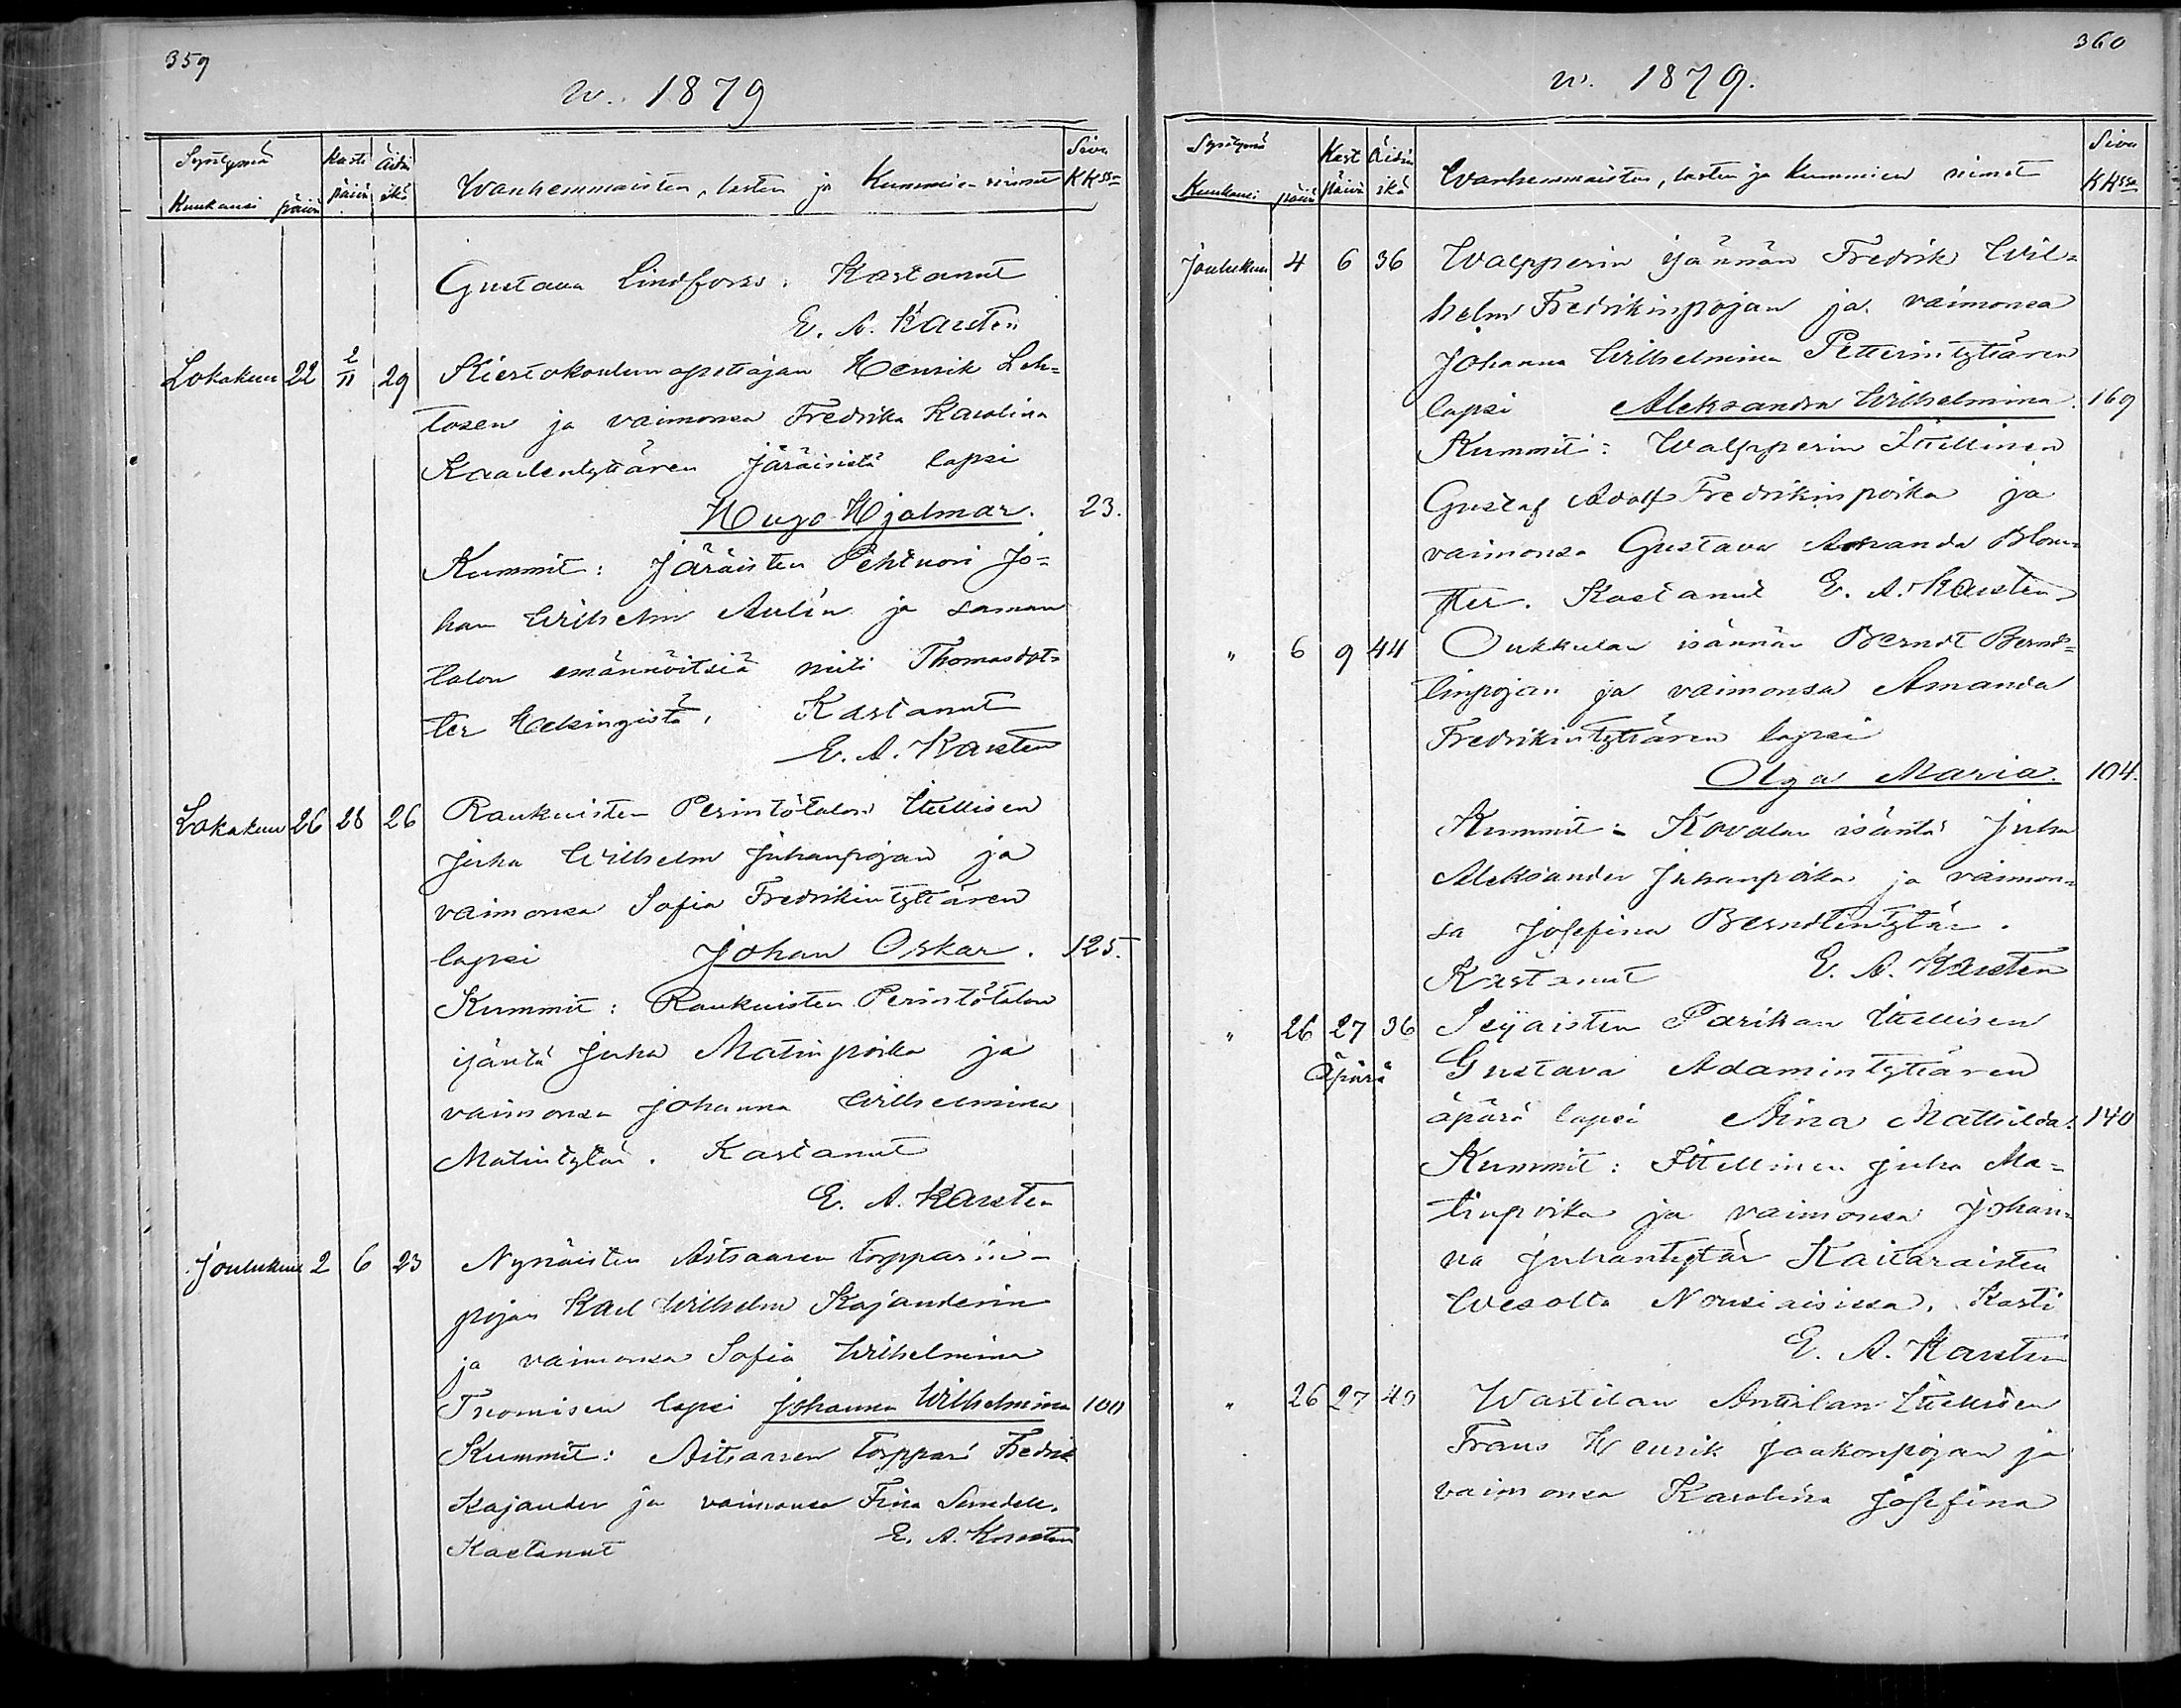 359
w. 1879
Syntymä Kasti Äidin Sivu
Kuukausi päivä päivä ikä Wanhemmaisten, lasten ja Kummien nimet KKssa
Gustava Lindforss. Kastanut
E. A. Karsten
Lokakuu 22 2/11 29 Kiertokoulunopettajan Henrik Leh-
tosen ja vaimonsa Fredrika Karolina
Kaarlentyttären Järäisistä lapsi
Hugo Hjalmar. 23.
Kummit: Järäisten Pehtuori Jo-
han Wilhelm Aulin ja saman
talon emännöitsiä Thomasdot-
ter Helsingistä. Kastanut
E. A. Karsten
Lokakuu 26 28 26 Raukuisten Perintötalon Itellisen
Juha Wilhelm Juhanpojan ja
vaimonsa Sofia Fredrikintyttären
lapsi Johan Oskar. 125.
Kummit: Raukuisten Perintötalon
isäntä Juha Matinpoika ja
vaimonsa Johanna Wilhelmina
Matintytär. Kastanut
E. A. Karsten
Joulukuu 2 6 23 Nynäisten Aitsaaren torpparin-
pojan Karl Wilhelm Kajanderin
ja vaimonsa Sofia Wilhelmina
Tuomisen lapsi Johanna Wilhelmina 100
Kummit: Aitsaaren torppari Fredrik
Kajander ja vaimonsa Fina Sundell.
Kastanut E. A. Karsten
360
w. 1879.
Syntymä Kast Äidin Sivu
Kuukausi päivä päivä ikä Wanhemmaisten, lasten ja Kummien nimet KKssa
Joulukuu 4 6 36 Walpperin isännän Fredrik Wil-
helm Fredrikinpojan ja vaimonsa
Johanna Wilhelmina Petterintyttären
lapsi Aleksandra Wilhelmina. 169
Kummit: Walpperin Itellinen
Gustaf Adolf Fredrikinpoika ja
vaimonsa Gustava Amanda Blom-
ster. Kastanut E. A. Karsten
" 6 9 44 Oukkulan isännän Berndt Bernd-
tinpojan ja vaimonsa Amanda
Fredrikintyttären lapsi
Olga Maria. 104.
Kummit: Kovalan isäntä Juha
Aleksander Juhanpoika ja vaimon-
sa Josefina Berndtintytär.
Kastanut E. A. Karsten
" 26 27 36 Seijaisten Parikan Itellisen
Äpärä Gustava Adamintyttären
äpärä lapsi Aina Mathilda. 140
Kummit: Itellinen Juha Ma-
tinpoika ja vaimonsa Johan-
na Juhantytär Kaitaraisten
Wesolta Nousiaisissa. Kasti
E. A. Karsten
" 26 27 40 Wastilan Anttilan Itellisen
Frans Henrik Jaakonpojan ja
vaimonsa Karolina Josefina